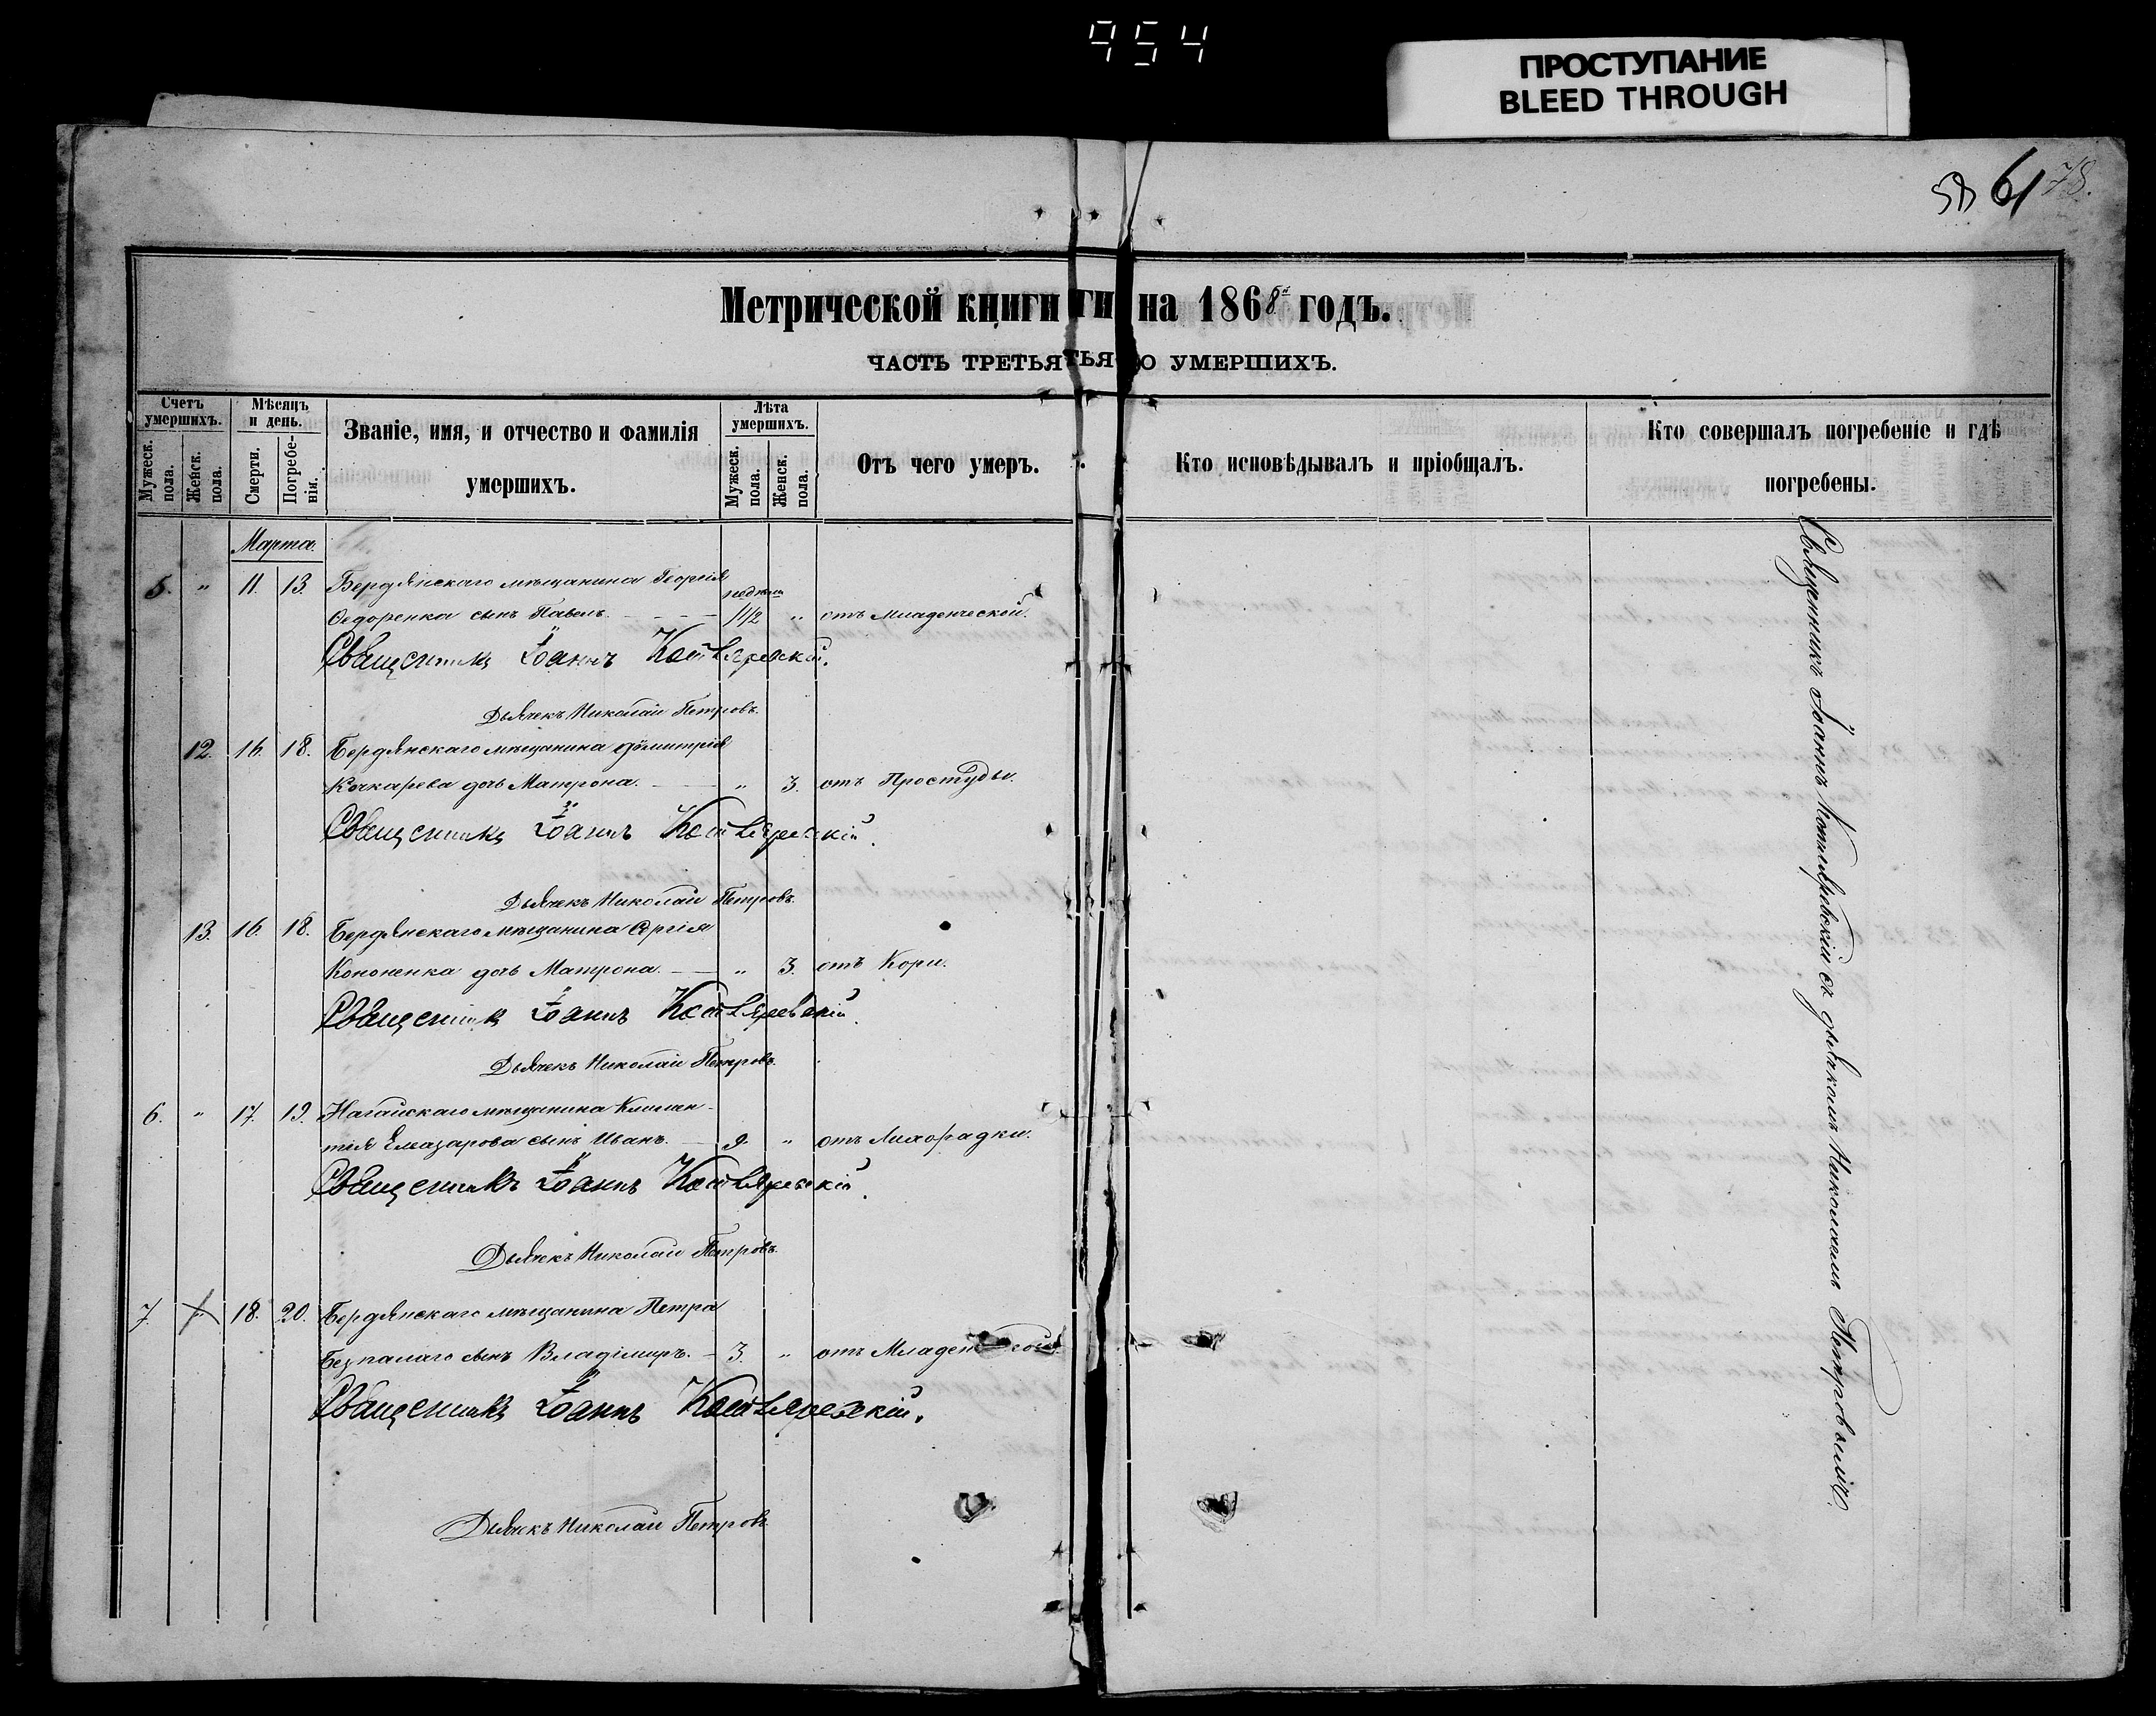 954
ПРОСТУПАНИЕ
BLEED THROUGH
61 78.
Метрической книги ги на 1868й годъ.
ЧАСТЬ ТРЕТЬЯ ТЬЯ О УМЕРШИХЪ.
Счетъ умершихъ.
Мужеск. пола.
Женск. пола.
Мѣсяцъ и день.
Смерти.
Погребе-нія.
Званіе, имя, и отчество и фамилія
умершихъ.
Лѣта умершихъ.
Мужеск. пола.
Женск. пола.
Отъ чего умеръ.
Кто исповѣдывалъ и пріобщалъ.
Кто совершалъ погребеніе и гдѣ
погребены.
Марта.
5. " 11. 13. Бердянскаго мѣщанина Георгія
Ѳедоренка сынъ Павелъ. 1 1/2 " отъ Младенческой.
Священникъ Іоаннъ Котляревскій.
Дьячекъ Николай Петровъ.
12. 16. 18. Бердянскаго мѣщанина Димитрія
Кочкарева дочь Матрона. " 3. отъ Простуды.
Священникъ Іоаннъ Котляревскій.
Дьячекъ Николай Петровъ.
13. 16. 18. Бердянскаго мѣщанина
Кононенка дочь Матрона. " 3. отъ Кори.
Священникъ Іоаннъ Котляревскій.
Дьячекъ Николай Петровъ.
6. " 17. 19. Нагайскаго мѣщанина Климен-
тія Елазарова сынъ Иванъ. 9. " отъ Лихорадки.
Священникъ Іоаннъ Котляревскій.
Дьячекъ Николай Петровъ.
7. 18. 20. Бердянскаго мѣщанина Петра
Безпалаго сынъ Владіміръ. 3. " отъ Младен
Священникъ Іоаннъ Котляревскій.
Дьячекъ Николай Петровъ.
Священникъ Іоаннъ Котляревскій съ дьячкомъ Николаемъ Петровымъ.